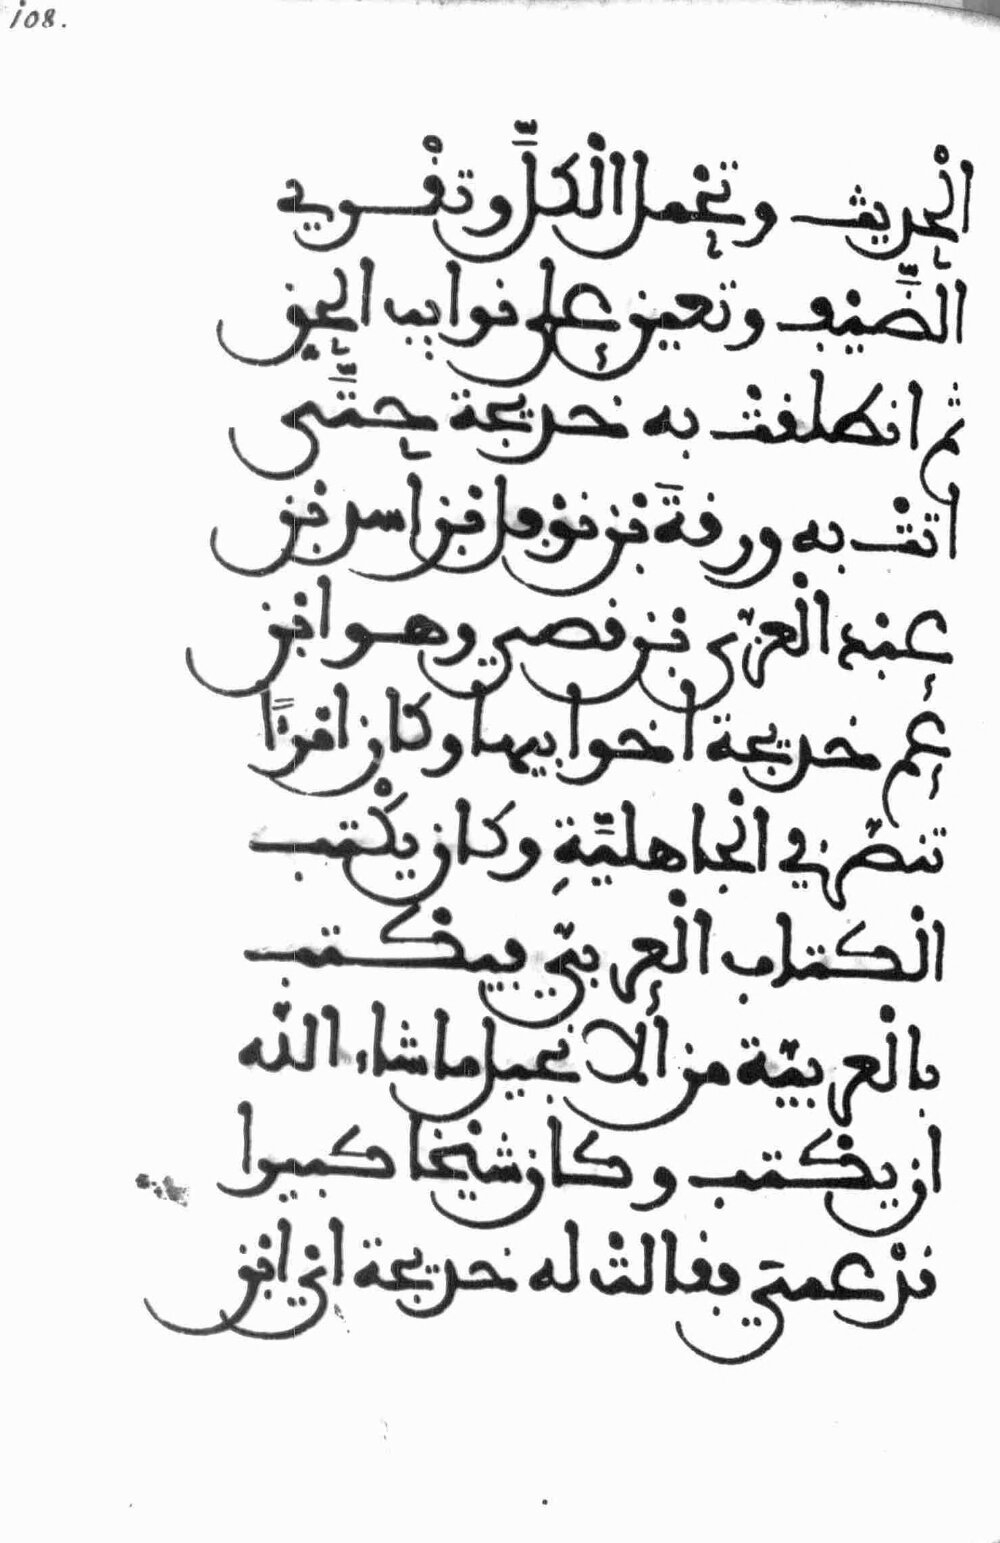 108.
الْحديث وتحمل الْكلَّ وتقْوي
الضَّيْف وتعين على نوايب الحق
ثم انطلقت به خديجة حتَّى
اتتْ به ورقةَ بن نوْفل بن اسد بن
عبْد الْعزّى بن قصي وهو ابن
عم خديجة اخو ابيها وكان امرءًا
تنصّر في الْجاهليَّةِ وكان يكْتب
الْكتاب الْعربيّ فيكتب
بالْعربيّة من الانجيل ما شاء اللّه
ان يكتب وكان شيْخا كبيرا
قدْ عمي فقالتْ له خديجة اي ابن